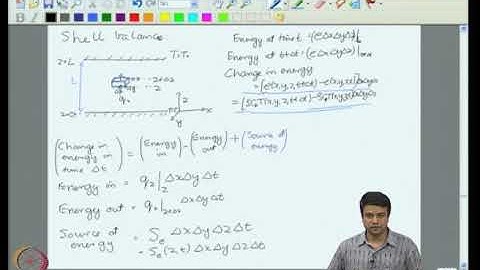 Shell balance
z=L
T=T₀
L
z+Δz
z
q₀
z=0
z
x
y
Energy at time t = (eΔxΔyΔz)|t
Energy at t+Δt = (eΔxΔyΔz)|t+Δt
Change in energy
= [e(x,y,z,t+Δt) - e(x,y,z,t)]ΔxΔyΔz
(Change in energy in time Δt) = (Energy in) - (Energy out) + (Source of energy)
Energy in = qz|z ΔxΔyΔt
Energy out = qz|z+Δz ΔxΔyΔt
Source of energy = Se ΔxΔyΔzΔt
= Se(z,t) ΔxΔyΔzΔt